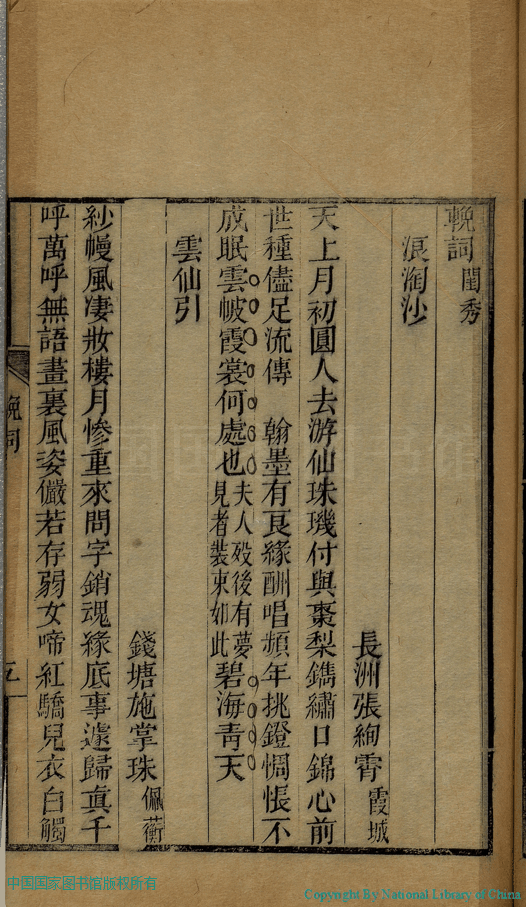 輓詞閨秀
浪淘沙
長洲張絢霄霞城
天上月初圓人去游仙珠璣付與棗梨鐫繡口錦心前
世種儘足流傳　翰墨有良緣酬唱頻年挑鐙惆悵不
成眠雲帔霞裳何處也夫人歿後有夢見者裝束如此碧海青天
雲仙引
錢塘施掌珠佩蘅
紗幔風凄妝樓月慘重來問字銷魂緣底事遽歸真千
呼萬呼無語畫裏風姿儼若存弱女啼紅驕兒衣白觸
輓詞
五
中国国家图书馆版权所有
Copyright By National Library of China